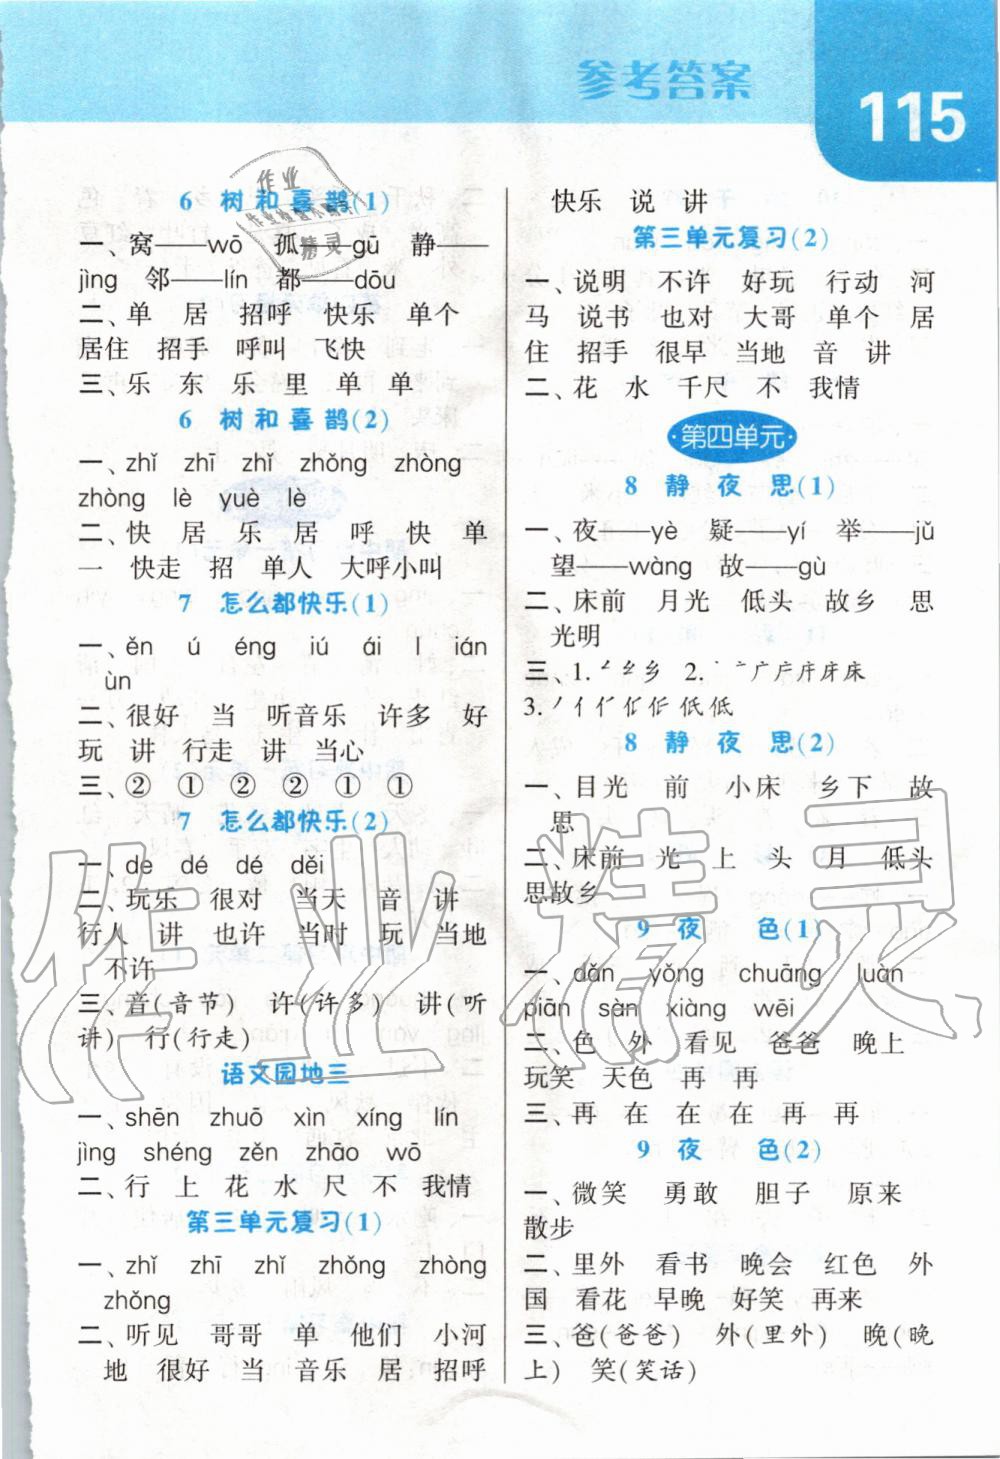 参考答案
115
6 树和喜鹊(1)
一、窝——wō 孤——gū 静——
jìng 邻——lín 都——dōu
二、单 居 招呼 快乐 单个
居住 招手 呼叫 飞快
三、乐 东 乐 里 单 单
6 树和喜鹊(2)
一、zhǐ zhī zhǐ zhǒng zhòng
zhòng lè yuè lè
二、快 居 乐 居 呼 快 单
一 快走 招 单人 大呼小叫
7 怎么都快乐(1)
一、ěn ú éng iú ái l ián
ùn
二、很好 当 听音乐 许多 好
玩 讲 行走 讲 当心
三、② ① ② ② ① ①
7 怎么都快乐(2)
一、de dé dé děi
二、玩乐 很对 当天 音 讲
行人 讲 也许 当时 玩 当地
不许
三、音(音节) 许(许多) 讲(听
讲) 行(行走)
语文园地三
一、shēn zhuō xìn xíng lín
jìng shéng zěn zhāo wō
二、行 上 花 水 尺 不 我情
第三单元复习(1)
一、zhǐ zhī zhǐ zhǒng zhòng
zhǒng
二、听见 哥哥 单 他们 小河
地 很好 当 音乐 居 招呼
快乐 说 讲
第三单元复习(2)
一、说明 不许 好玩 行动 河
马 说书 也对 大哥 单个 居
住 招手 很早 当地 音 讲
二、花 水 千尺 不 我情
·第四单元·
8 静夜思(1)
一、夜——yè 疑——yí 举——jǔ
望——wàng 故——gù
二、床前 月光 低头 故乡 思
光明
三、1. 乡 2. 广 床
3. 亻 低
8 静夜思(2)
一、目光 前 小床 乡下 故
思
二、床前 光 上 头 月 低头
思故乡
9 夜色(1)
一、dǎn yǒng chuāng luàn
piān sàn xiàng wēi
二、色 外 看见 爸爸 晚上
玩笑 天色 再 再
三、再 在 在 在 再 再
9 夜色(2)
一、微笑 勇敢 胆子 原来
散步
二、里外 看书 晚会 红色 外
国 看花 早晚 好笑 再来
三、爸(爸爸) 外(里外) 晚(晚
上) 笑(笑话)
作业精灵